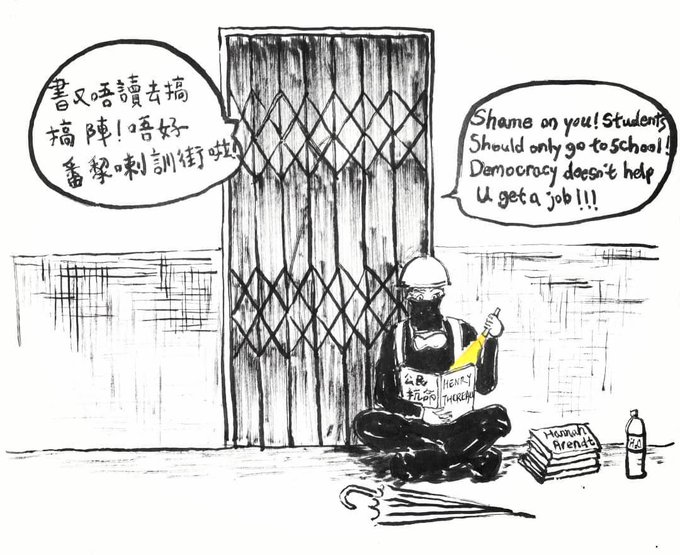 書又唔讀去搞
搞陣！唔好
番黎喇訓街啦！
Shame on you! Students
Should only go to School!
Democracy doesn't help
U get a job!!!
公民
抗命
HENRY
THEREAU
Hannah
Arendt
H₂O